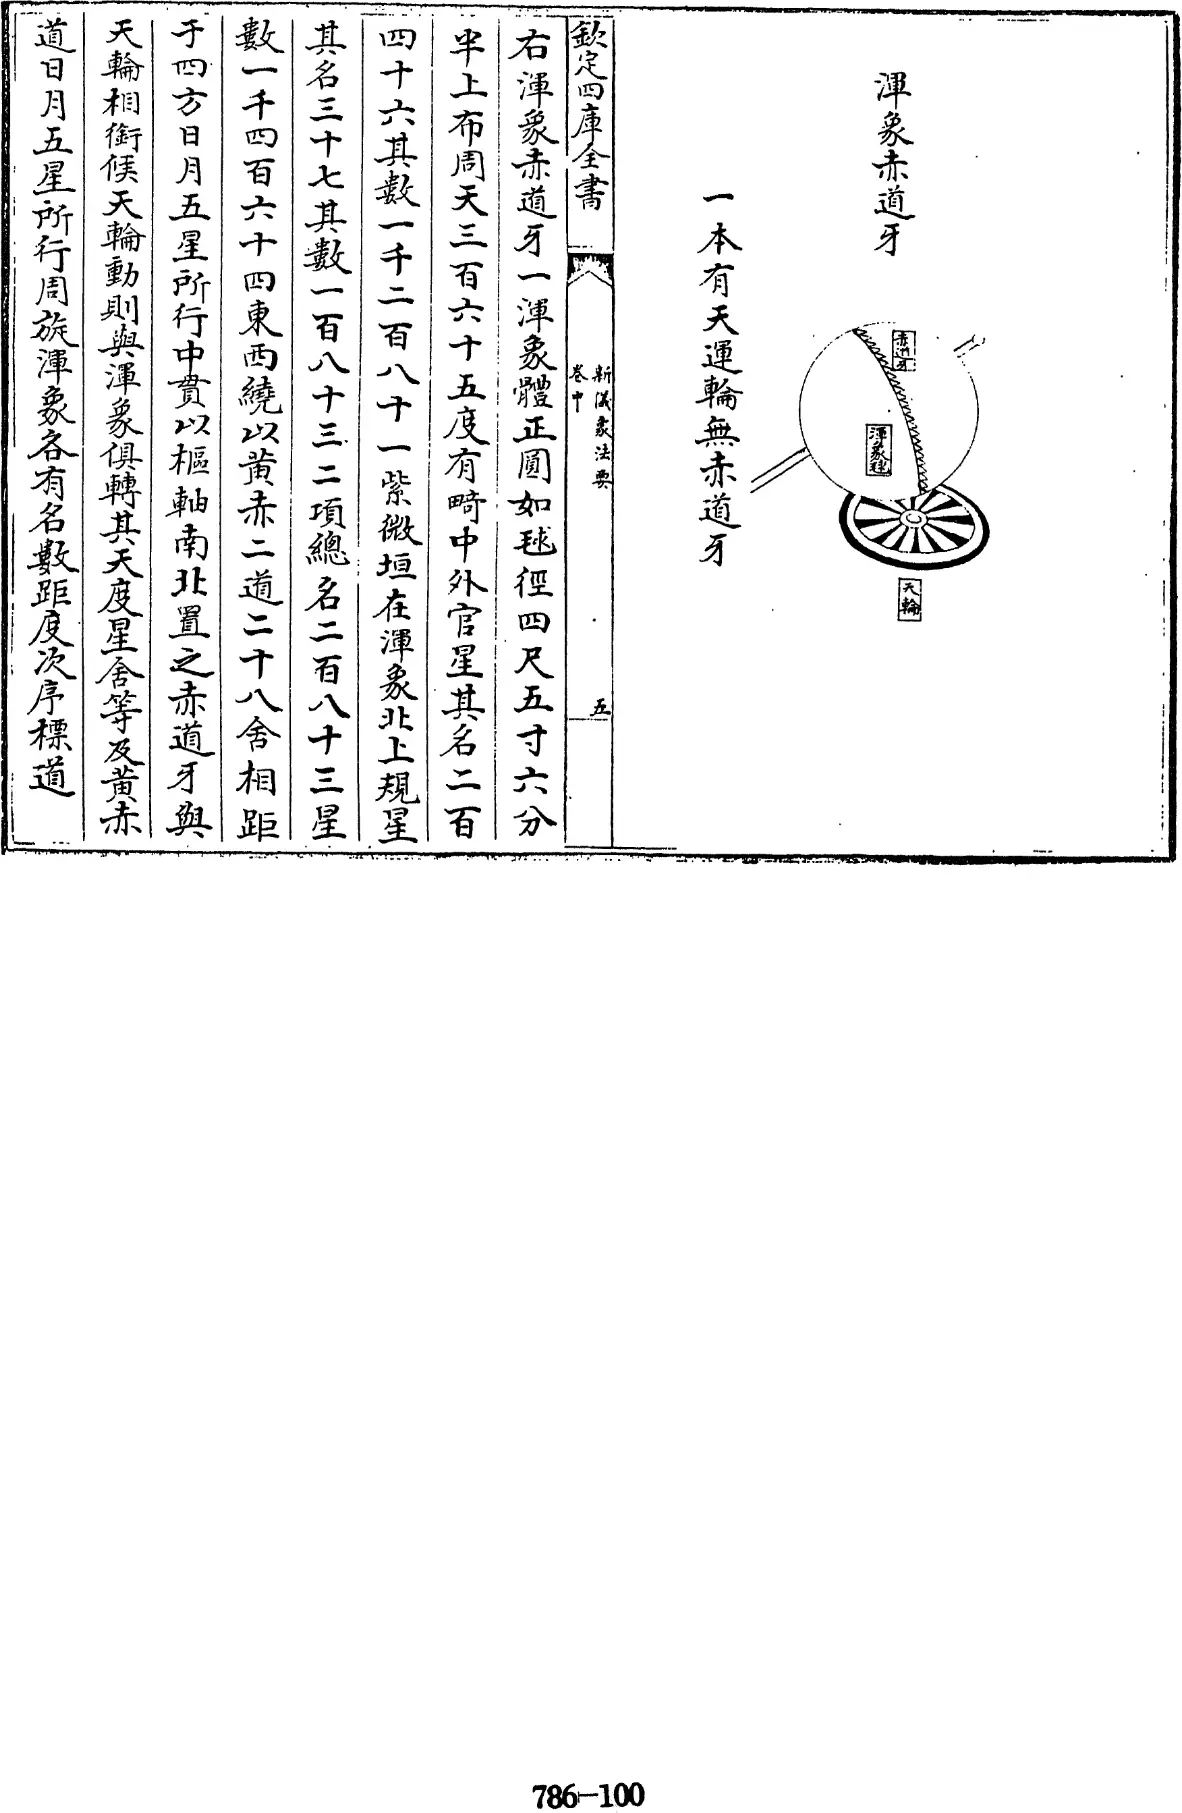 渾象赤道牙
赤道牙
渾象毬
天輪
一本有天運輪無赤道牙
欽定四庫全書
新儀象法要
卷中
五
右渾象赤道牙一渾象體正圓如毬徑四尺五寸六分
半上布周天三百六十五度有畸中外官星其名二百
四十六其數一千二百八十一紫微垣在渾象北上規星
其名三十七其數一百八十三二項總名二百八十三星
數一千四百六十四東西繞以黄赤二道二十八舍相距
于四方日月五星所行中貫以樞軸南北置之赤道牙與
天輪相銜候天輪動則與渾象俱轉其天度星舍等及黄赤
道日月五星所行周旋渾象各有名數距度次序標道
786-100